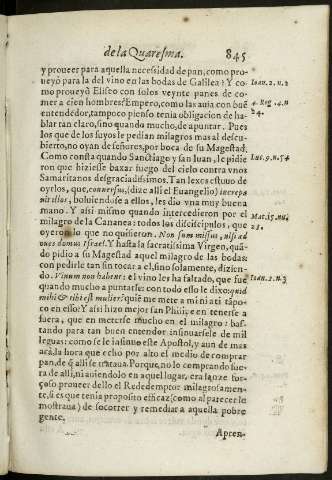 de la Quaresma. 845
y proueer para aquella necessidad de pan, como pro-
ueyò para la del vino en las bodas de Galilea? Y co
mo proueyò Eliseo con solos veynte panes de co-
mer a cien hombres? Empero, como las auia con buē
entendedor, tampoco pienso tenia obligacion de ha-
blar tan claro, sino quando mucho, de apuntar. Pues
los que de los suyos le pedian milagros mas al descu-
bierto, no oyan de señores, por boca de su Magestad.
Como consta quando Sanctiago y san Iuan, le pidie
ron que hiziesse baxar fuego del cielo contra vnos
Samaritanos desgraciadissimos. Tan lexos estuuo de
oyrlos, que, conuersus, (dize alli el Euangelio) increpa
uit illos, boluiendose a ellos, les dio vna muy buena
mano. Y assi mismo quando intercedieron por el
milagro de la Cananea: todos los discipulos, que
oyeron lo que no quisieron. Non sum missus, nisi ad
oues domus Israel. Y hasta la sacratissima Virgen, quā
do pidio a su Magestad aquel milagro de las bodas:
con pedirle tan sin tocar a el, sino solamente, dizien-
do. Vinum non habent: el vino les ha faltado, que fue
quando mucho a puntarse: con todo esso le dixo: quid
mihi & tibi est mulier? quiē me mete a mi ni a ti tāpo-
co en esso? Y assi hizo mejor san Phili, e en tenerse a
fuera, que en meterse mucho en el milagro: bas-
tando para tan buen entendor insinuarsele de mil
leguas: como se le insinuo este Apostol, y aun de mas
acà, la hora que echo por alto el medio de comprar
pan, de q̄ alli se trataua. Porque, no lo comprando fue
ra de alli, ni auiendolo en aquel lugar, era lance for-
çoso proueer dello el Rededemptor milagrosamen-
te, si es que tenia proposito efficaz (como al parecer le
mostraua) de socorrer y remediar a aquella pobre
gente.
Apren-
Ioan. 2. n. 2
4. Reg. 4. n
24.
Luc. 9. n. 54
Mat. 15. nu.
Ioan. 2. n. 3